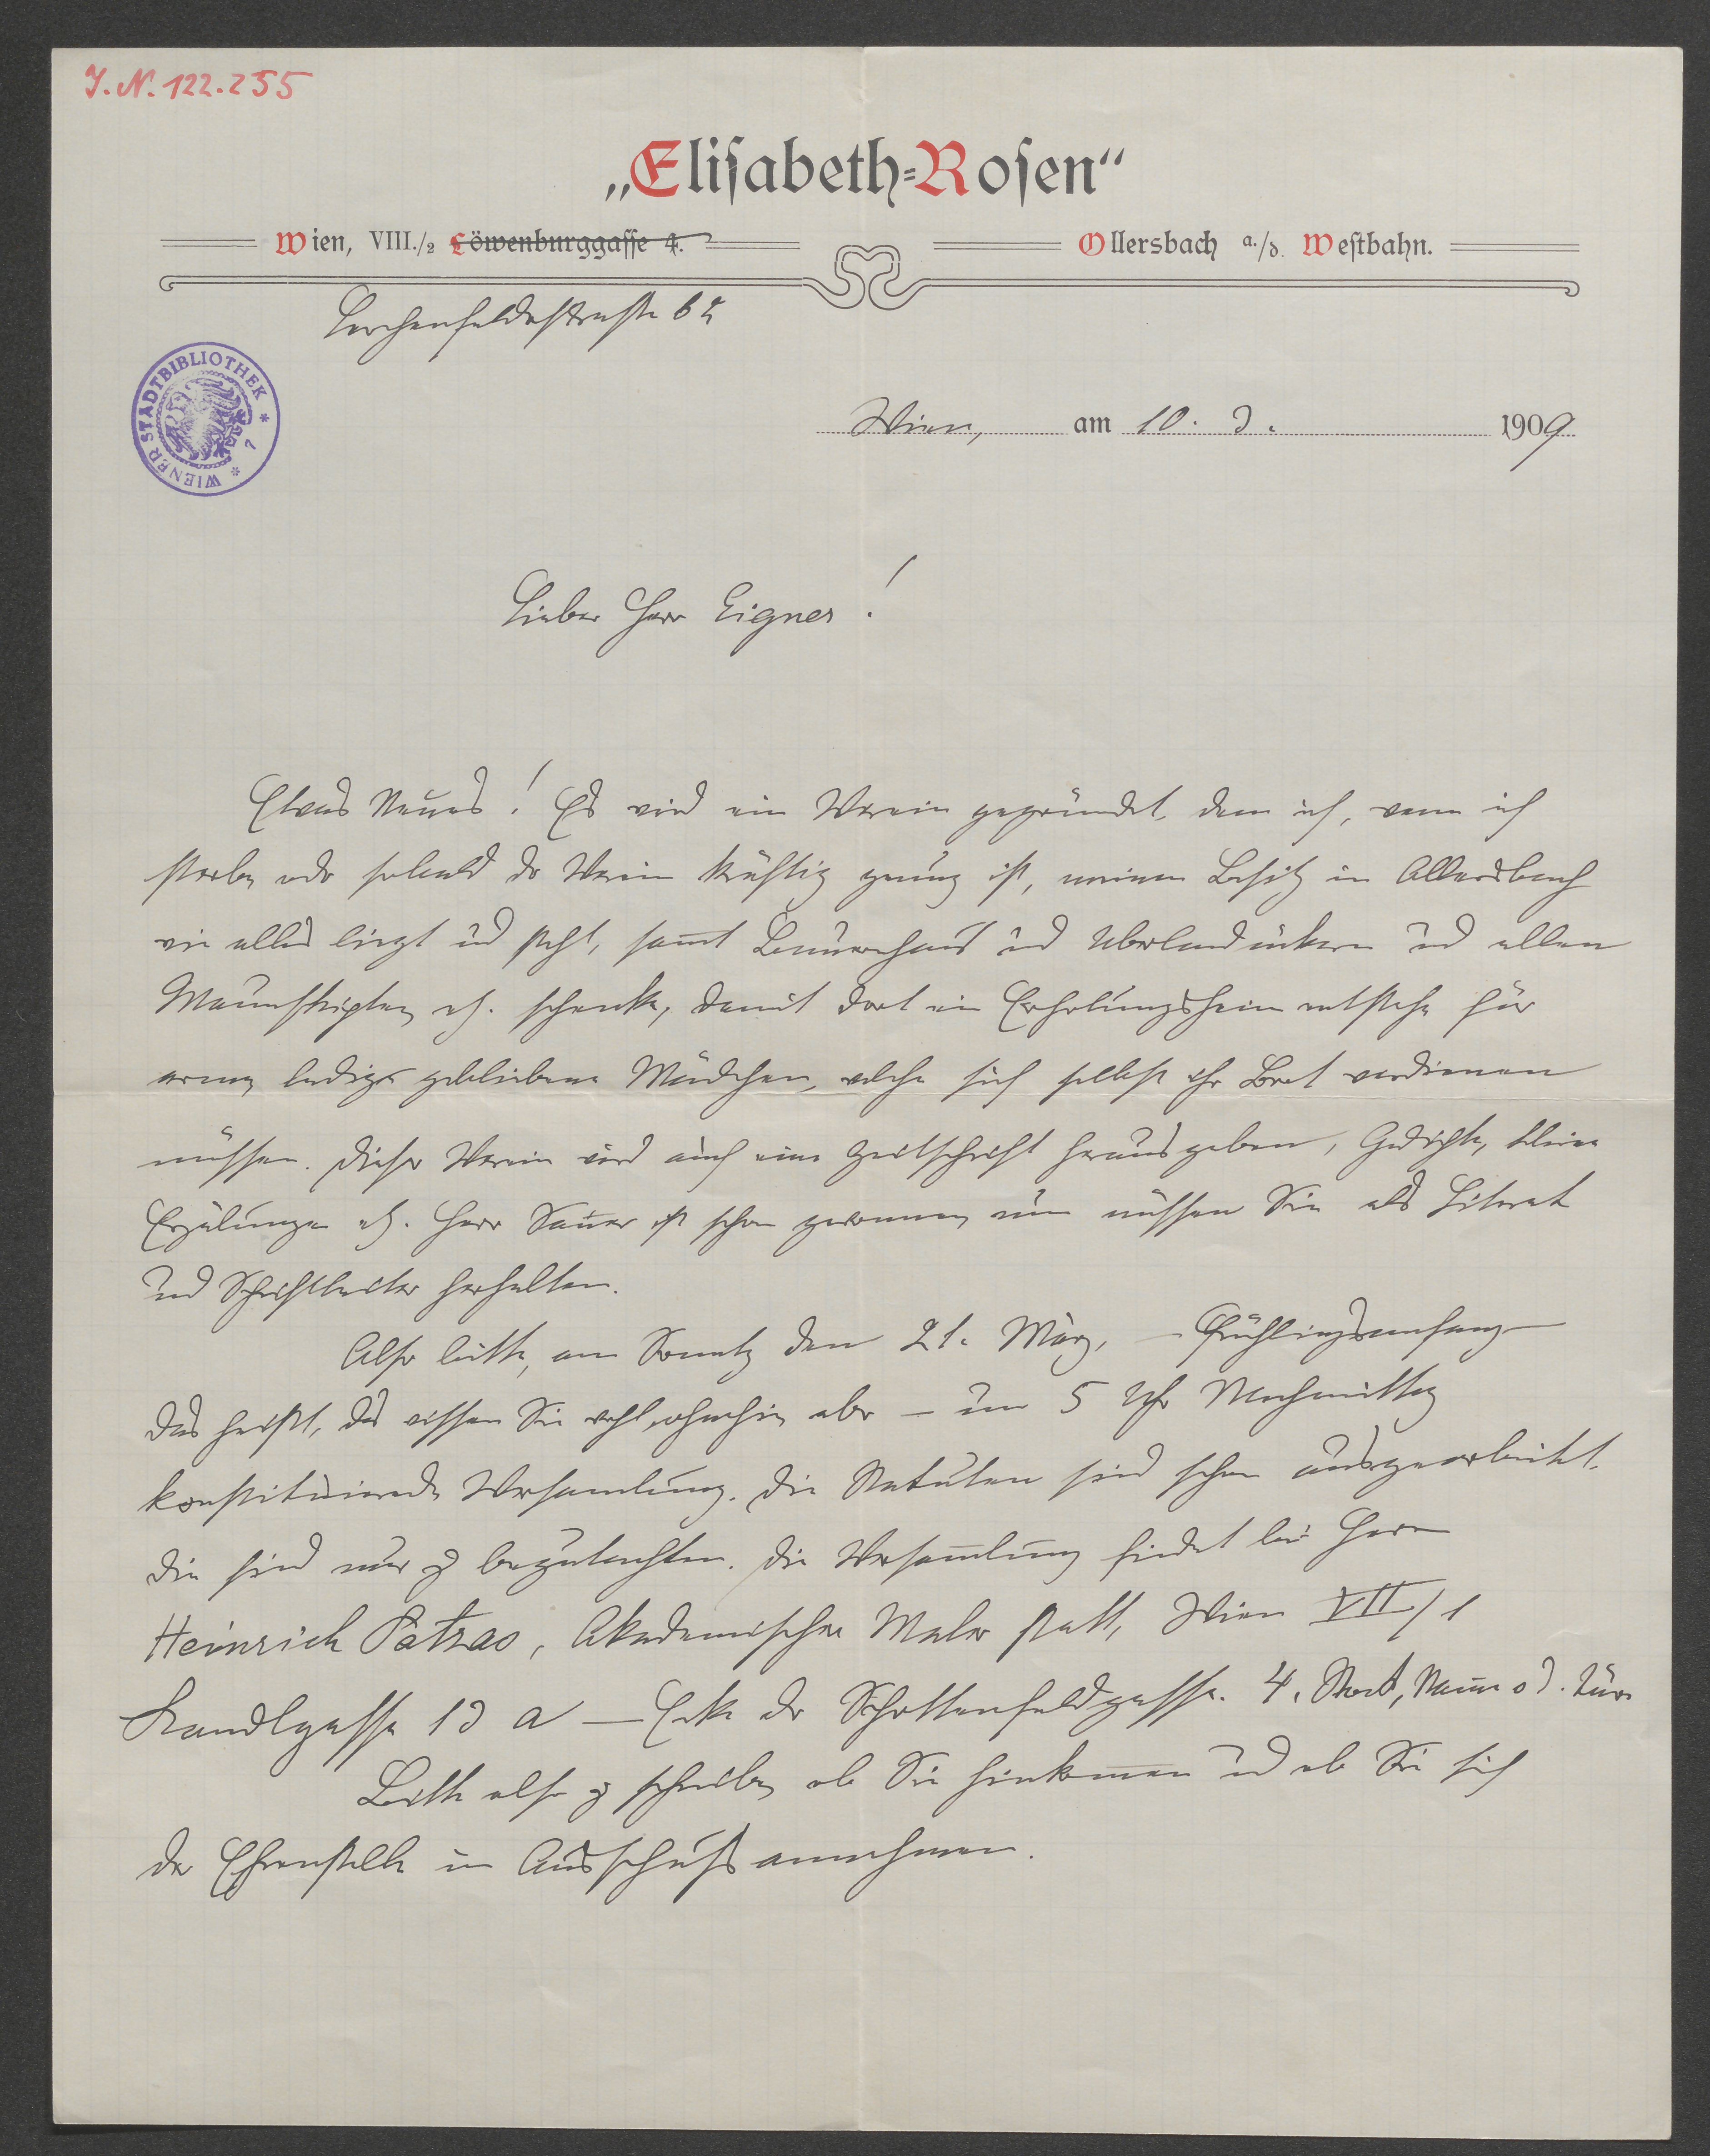 I. N. 122.255
„Elisabeth=Rosen“
Wien, VIII./2 Löwenburggasse 4.
Ollersbach a./d. Westbahn.
Lerchenfelderstrasse
WIENER STADTBIBLIOTHEK * 7 *
Wien, am 10. 3. 1909
Lieber Herr Eigner!
Etwas Neues! Es wird ein Verein gegründet, dem ich, wenn ich
sterbe oder sobald der Verein kräftig genug ist, meinen Besitz in Ollersbach
wie alles liegt und steht, samt Bauernhaus und Überlandäckern und allen
Manuskripten etz. schenke, damit dort ein Erholungsheim entstehe für
arme ledige gebliebene Mädchen, welche sich selbst ihr Brot verdienen
müssen. Dieser Verein wird auch eine Zeitschrift herausgeben, Gedichte, kleine
Erzälungen etz. Herr Sauer ist schon gewonnen, nun müssen Sie als Literat
und Schriftleiter herhalten.
Also bitte, am Sonntag den 21. März, – Frühlingsanfang –
das heißt, das wissen Sie wohl ohnehin, aber – um 5 Uhr Nachmittag
konstituierende Versamlung. Die Statuten sind schon ausgearbeitet.
Die sind nur zu begutachten. Die Versammlung findet bei Herrn
Heinrich Patzao, Akademischer Maler statt, Wien VII/1
Kandlgasse 13 a – Ecke der Schottenfeldgasse. 4. Stock, Tür
Bitte also zu schreiben, ob Sie hinkommen und ob Sie sich
der Ehrenstelle im Ausschuß annehmen.